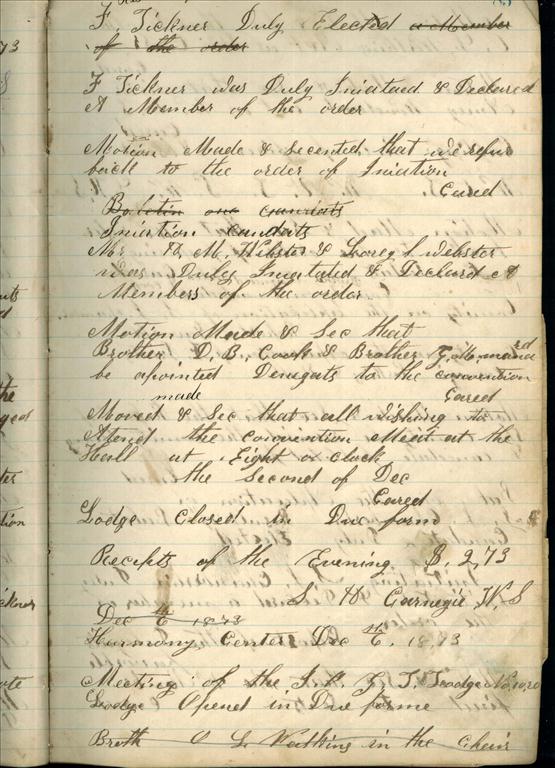 F Tickner Duly Elected a Member
of the order
F Tickner was Duly Iniataed & Declared
A Member of the order
Motion Made & secented that we refur
back to the order of Iniation
Cared
one
Iniartion candats
Mr. H. M. Webster & Webster
was Duley Iniatated & Declard A
Members of the order
Motion Made & Sec that
Brother D. B. Cook & Brother
be apointed Denegats to the convention
made Cared
Moved & Sec that all wishing to
Atend the convention Meat at the
Hall at Eight o clock
the Second of Dec
Cared
Lodge Closed in Due form
Receipts of the Evening $. 2,73
S H Carnegie W. S
Dec 1873
Harmony Center Dec 1873
Meeting of the I. O. G. T. Lodge No.
Lodge Opened in Due forme
Broth O L Watkins in the Chair